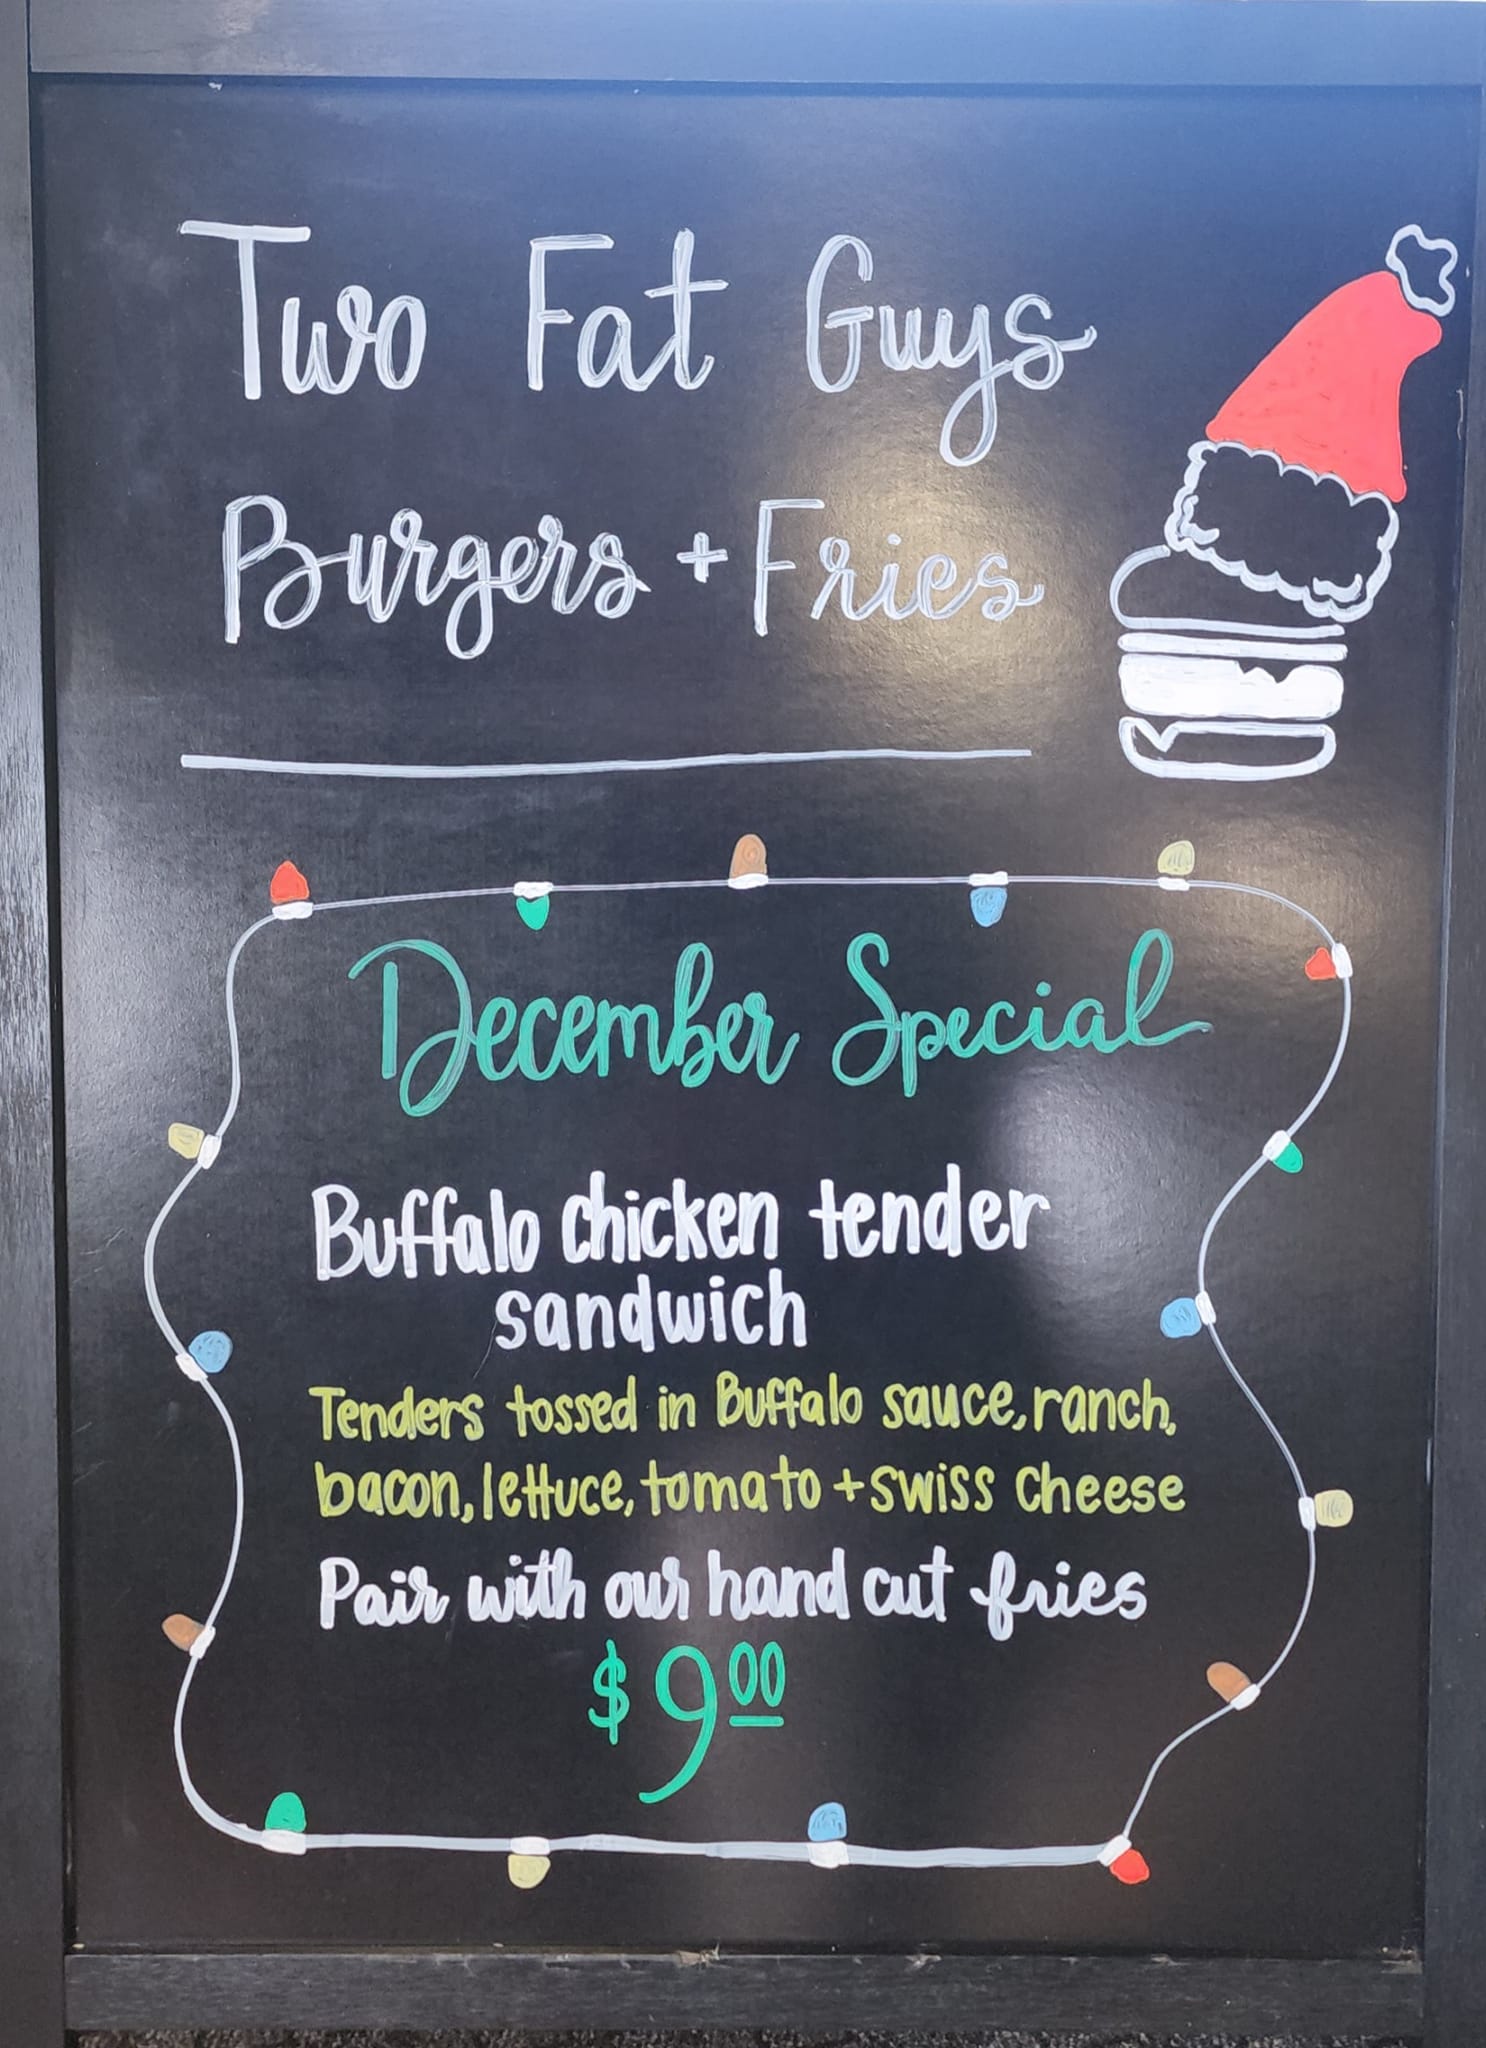 Two Fat Guys
Burgers + Fries
December Special
Buffalo chicken tender
sandwich
Tenders tossed in Buffalo sauce, ranch,
bacon, lettuce, tomato + swiss cheese
Pair with our hand cut fries
$9.00